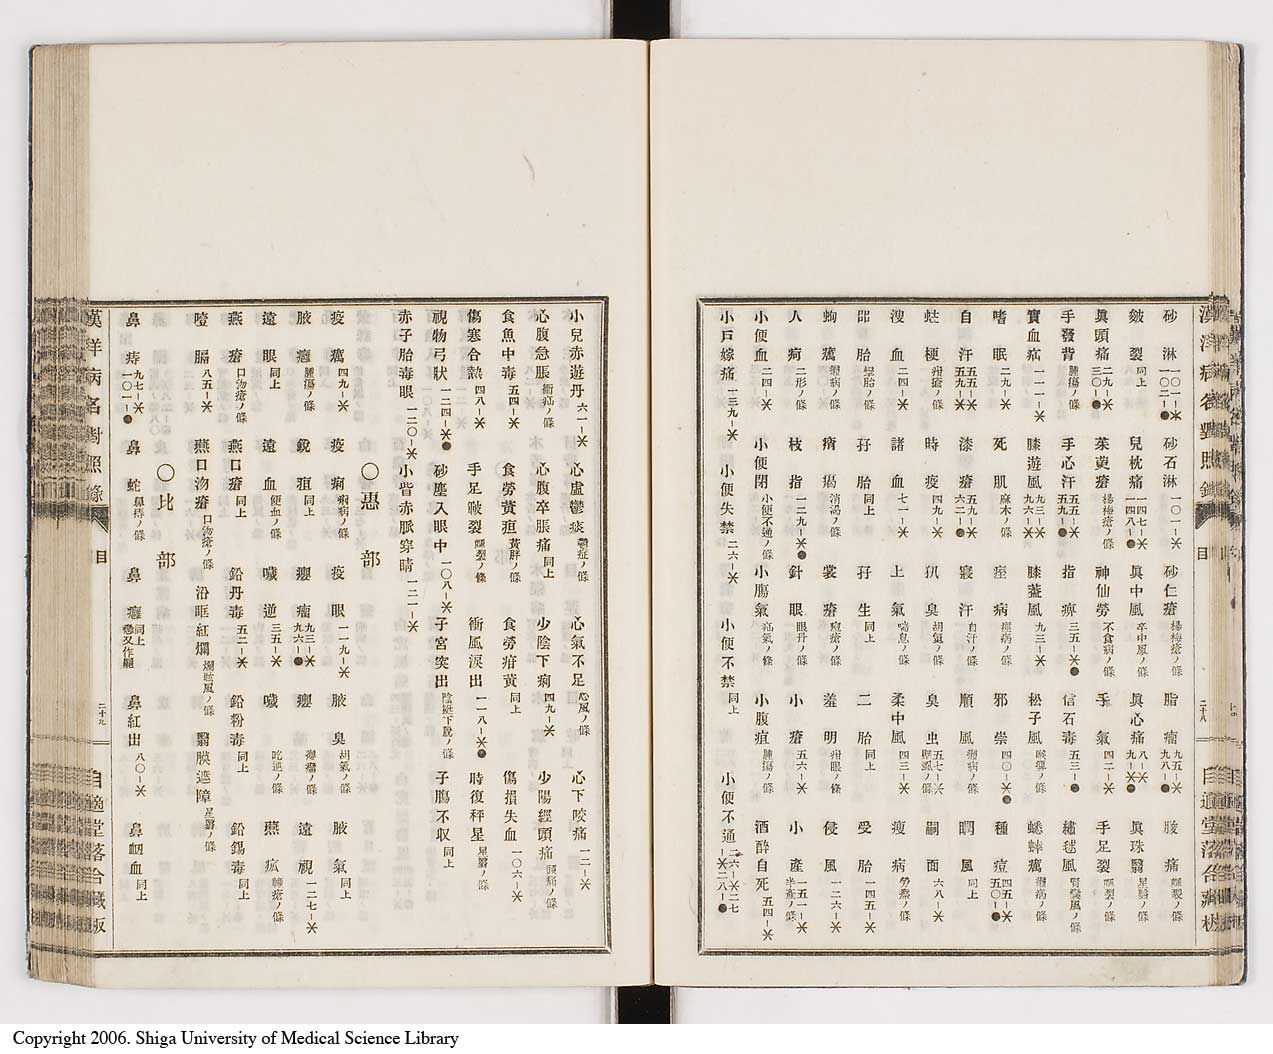 砂淋 一〇一-＊ 一〇二-● 砂石淋 一〇一-＊ 砂仁瘡 楊梅瘡ノ條 脂瘤 九五-＊ 九八-● 朘痛 皸裂ノ條
皴裂 同上 兒枕痛 一四七-＊ 一四八-● 眞中風 卒中風ノ條 眞心痛 八-＊ 九-● 眞珠翳 星翳ノ條
眞頭痛 二九-＊ 三〇-● 茱萸瘡 楊梅瘡ノ條 神仙勞 不食病ノ條 手氣 四二-＊ 手足裂 皸裂ノ條
手發背 腫瘍ノ條 手心汗 五五-＊ 五九-● 指痹 三五-＊● 信石毒 五三-● 繡毬風 腎囊風ノ條
實血疝 一一一-＊ 膝遊風 九三-＊ 九六-＊ 膝蓋風 九三-＊ 松子風 喉痹ノ條 蟋蟀癘 癩病ノ條
嗜眠 二九-＊ 死肌 麻木ノ條 痓病 痙病ノ條 邪祟 四〇-＊● 種痘 四五-＊ 五〇-●
自汗 五五-＊ 五九-＊ 漆瘡 五九-＊ 六二-● 寢汗 自汗ノ條 順風 癩病ノ條 瞤風 同上
蛀梗 疳瘡ノ條 時疫 四九-＊ 狐臭 胡氣ノ條 臭虫 五七-＊ 嗣面 六八-＊
溲血 二四-＊ 諸血 七一-＊ 上氣 喘息ノ條 柔中風 四三-＊ 瘦病 勞瘵ノ條
胎 孿胎ノ條 孖胎 同上 孖生 同上 二胎 同上 受胎 一四五-＊
蚼癘 癩病ノ條 痟瘍 消渴ノ條 裳瘡 痘瘡ノ條 羞明 疳眼ノ條 侵風 一二六-＊
人痾 二形ノ條 枝指 一二九-＊● 針眼 眼丹ノ條 小瘡 五六-＊ 小產 一五一-＊ 半產ノ條
小便血 二四-＊ 小便閉 小便不通ノ條 小膓氣 疝氣ノ條 小腹疽 腫瘍ノ條 酒醉自死 五四-＊
小戸嫁痛 一三九-＊ 小便失禁 二六-＊ 小便不禁 同上 小便不通 二六-＊二七-＊二八-●
漢洋病名對照錄 目 二十八 自適堂落合藏板
小兒赤遊丹 六一-＊ 心虛鬱痰 鬱症ノ條 心氣不足 心風ノ條 心下咬痛 一二-＊
心腹急脹 衝疝ノ條 心腹卒脹痛 同上 少陰下痢 四九-＊ 少陽經頭痛 頭痛ノ條
食魚中毒 五四-＊ 食勞黃疸 黃胖ノ條 食勞疳黃 同上 傷損失血 一〇六-＊
傷寒合熱 四八-＊ 手足皸裂 皸裂ノ條 衝風淚出 一一八-＊● 時復秤星 星翳ノ條
視物弓狀 一二四-＊● 砂塵入眼中 一〇八-＊ 子宮突出 陰挺下脫ノ條 子膓不收 同上
赤子胎毒眼 一二〇-＊ 小眥赤脈穿睛 一二一-＊
〇惠部
疫癘 四九-＊ 疫痢 痢病ノ條 疫眼 一一九-＊ 腋臭 胡氣ノ條 腋氣 同上
腋癰 腫瘍ノ條 銳疽 同上 癭瘤 九三-＊ 九六-● 癭 癭瘤ノ條 遠視 一二七-＊
遠眼 同上 遠血 便血ノ條 噦逆 三五-＊ 噦 吃逆ノ條 燕瓜 癬瘡ノ條
燕瘡 口沕瘡ノ條 燕口瘡 同上 鉛丹毒 五二-＊ 鉛粉毒 同上 鉛錫毒 同上
噎膈 八五-＊ 燕口沕瘡 口沕瘡ノ條 沿眶紅爛 爛眩風ノ條 翳膜遮障 星翳ノ條
〇比部
鼻痔 九七-＊ 一〇一-● 鼻蛇 鼻痔ノ條 鼻癰 同上 癰又作齆 鼻紅出 八〇-＊ 鼻衄血 同上
漢洋病名對照錄 目 二十九 自適堂落合藏板
Copyright 2006. Shiga University of Medical Science Library